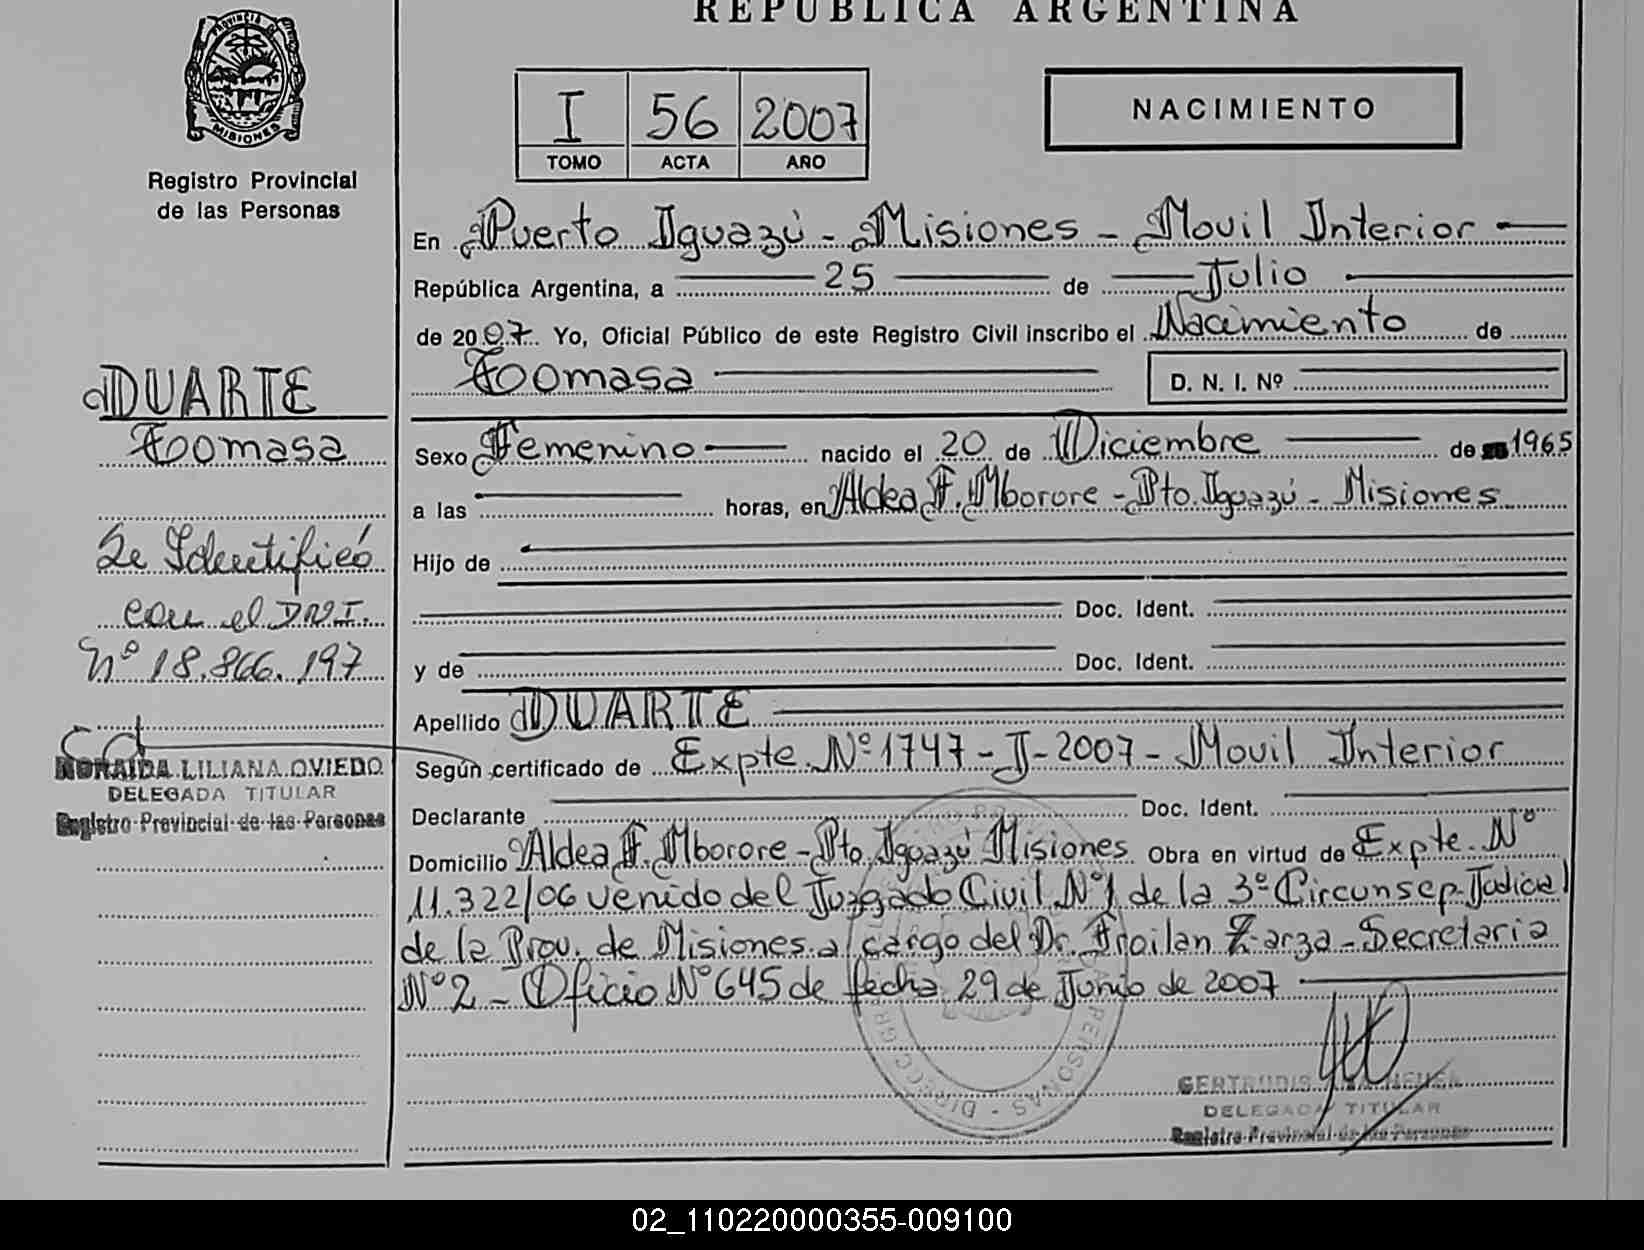 REPUBLICA ARGENTINA
PROVINCIA DE
MISIONES
Registro Provincial
de las Personas
I 56 2007
TOMO ACTA AÑO
NACIMIENTO
En Puerto Iguazú - Misiones - Movil Interior
República Argentina, a 25 de Julio
de 2007. Yo, Oficial Público de este Registro Civil inscribo el Nacimiento de
Toomasa D. N. I. Nº
Sexo Femenino nacido el 20 de Diciembre de 1965
a las horas, en Aldea F. Mborore - Pto. Iguazú - Misiones
Hijo de
Doc. Ident.
y de Doc. Ident.
Apellido DUARTE
Según certificado de Expte. Nº 1747 - J - 2007 - Movil Interior
Declarante Doc. Ident.
Domicilio Aldea F. Mborore - Pto. Iguazú Misiones Obra en virtud de Expte. Nº
11.322/06 venido del Juzgado Civil Nº 1 de la 3º Circunscp. Judicial
de la Prov. de Misiones a cargo del Dr. Froilan Zarza - Secretaria
Nº 2 - Oficio Nº 645 de fecha 29 de Junio de 2007
GERTRUDIS
DELEGADA TITULAR
Registro Provincial de las Personas
DUARTE
Toomasa
Se Identificó
con el D.N.I.
Nº 18.866.197
NORAIDA LILIANA OVIEDO
DELEGADA TITULAR
Registro Provincial de las Personas
PERSONAS - DIRECC. GR
02_110220000355-009100